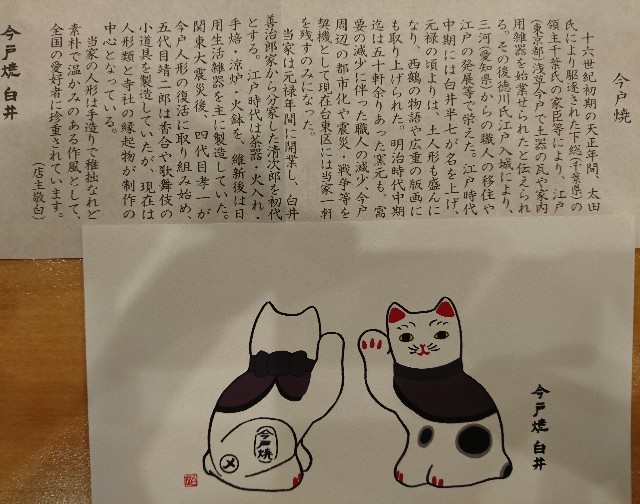 今戸焼
十六世紀初期の天正年間、太田
氏により駆逐された下総(千葉県)の
領主千葉氏の家臣等により、江戸
(東京都)浅茅今戸で土器の瓦や家内
用雑器を始業せられたと伝えられ
る。その後徳川氏江戸入城により、
三河(愛知県)からの職人の移住や
江戸の発展等で栄えた。江戸時代
中期には白井半七が名を上げ、
元禄の頃よりは、土人形も盛んに
なり、西鶴の物語や広重の版画に
も取り上げられた。明治時代中期
迄は五十軒余りあった窯元も、需
要の減少に伴った職人の減少、今戸
周辺の都市化や震災・戦争等を
契機として現在台東区には当家一軒
を残すのみになった。
当家は元禄年間に開業し、白井
善治郎家から分家した清次郎を初代
とする。江戸時代は茶器・火入れ・
手焙・涼炉・火鉢を、維新後は日
用生活雑器を主に製造していた。
関東大震災後、四代目孝一が
今戸人形の復活に取り組み始め、
五代目靖二郎は香合や歌舞伎の
小道具を製造していたが、現在は
人形類と寺社の縁起物が制作の
中心となっている。
当家の人形は手造りで稚拙なれど
素朴で温かみのある作風として、
全国の愛好者に珍重されています。
(店主敬白)
今戸焼 白井
今戸焼 白井
今戸焼